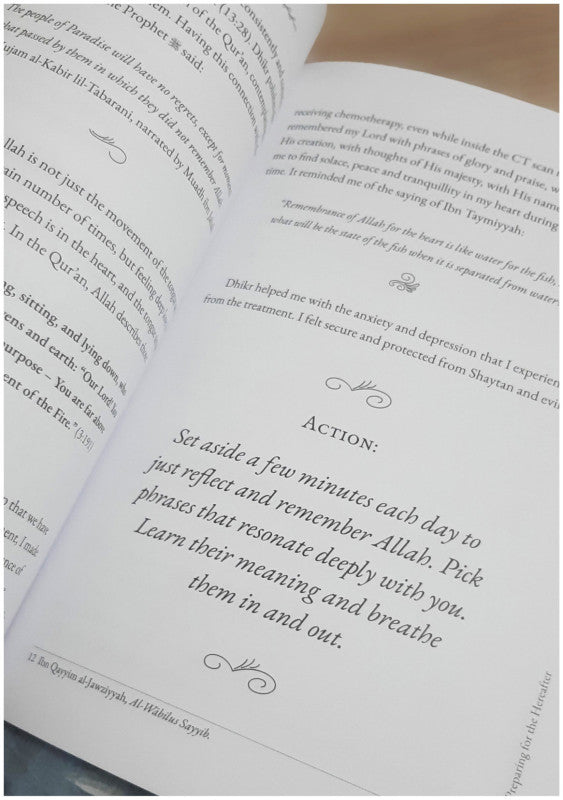 consistently and
(13:28) Dhikr polishes
of the Qur'an, contemplate
them. Having this connection
the Prophet ﷺ said:
The people of Paradise will have no regrets, except for moments
that passed by them in which they did not remember Allah.
Mujam al-Kabir lil-Tabarani, narrated by Muadh ibn
Allah is not just the movement of the tongue
number of times, but feeling deep
speech is in the heart, and the tongue
In the Qur'an, Allah describes
sitting, and lying down, who
and earth: "Our Lord!
purpose – You are far above
of the Fire." (3:191)
that we have
I made
receiving chemotherapy, even while inside the CT scan
remembered my Lord with phrases of glory and praise,
His creation, with thoughts of His majesty, with His
me to find solace, peace and tranquillity in my heart during
time. It reminded me of the saying of Ibn Taymiyyah:
"Remembrance of Allah for the heart is like water for the fish,
what will be the state of the fish when it is separated from water
Dhikr helped me with the anxiety and depression that I
from the treatment. I felt secure and protected from Shaytan and
ACTION:
Set aside a few minutes each day to
just reflect and remember Allah. Pick
phrases that resonate deeply with you.
Learn their meaning and breathe
them in and out.
12 Ibn Qayyim al-Jawziyyah, Al-Wābilus Sayyib.
Preparing for the Hereafter